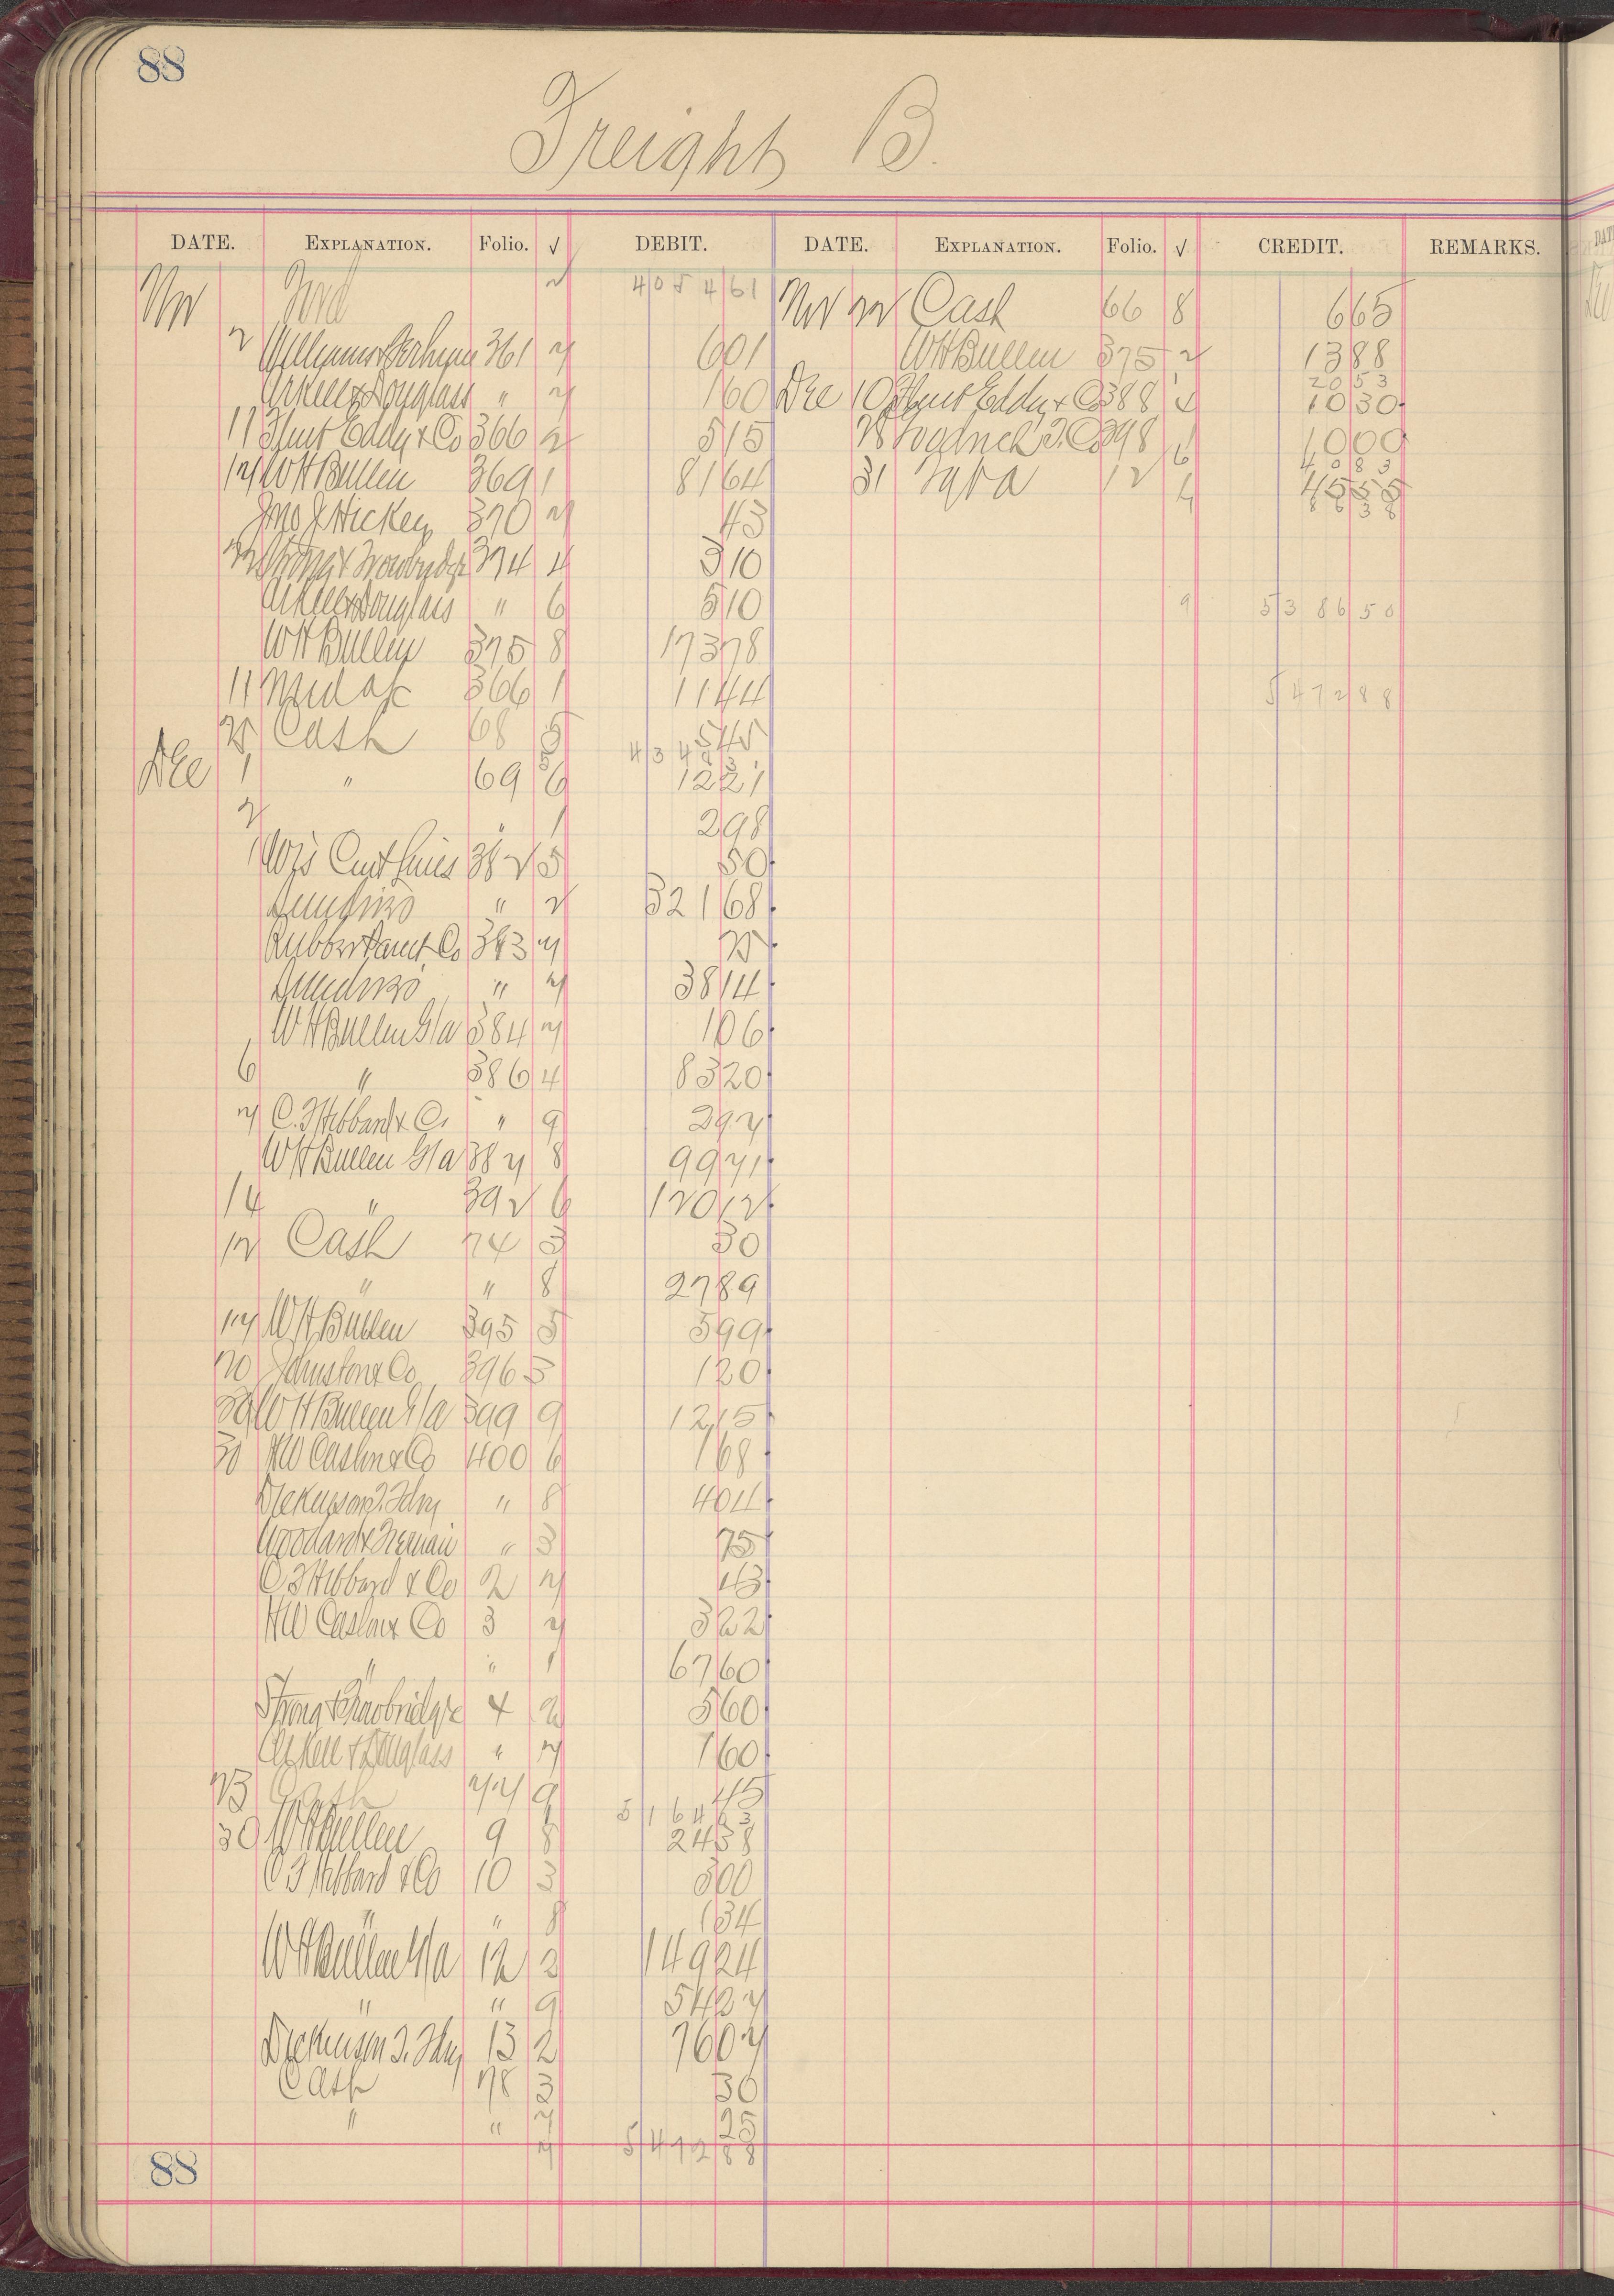 88
Freight B.
DATE. EXPLANATION. Folio. √ DEBIT. DATE. EXPLANATION. Folio. √ CREDIT. REMARKS.
Nov Ford 2 4054 61 Nov 22 Cash 66 8 6 65
2 Williams & Terhune 361 7 6 01 WH Bullen 375 2 13 88
Arkell & Douglass " 7 1 60 20 53
Dec 10 Flint Eddy & Co 388 4 10 30
11 Flint Eddy & Co 366 2 5 15 28 398 10 00
12 WH Bullen 369 1 81 64 40 83
31 12 4 45 55
Jno J Hickey 370 7 43 86 38
22 Strong & Trowbridge 374 4 3 10
Arkell & Douglass " 6 5 10 9 5386 50
WH Bullen 375 8 173 78
11 366 1 11 44 5472 88
25 Cash 68 5 5 45
4349 31
Dec 1 " 69 6 12 21
2 " 1 2 98
1 Wis Cent Lines 382 5 50
Sundries " 2 321 68
Rubber Paint Co 383 7 25
Sundries " 7 38 14
WH Bullen G/a 384 7 1 06
6 " 386 4 83 20
7 C. F Hibbard & Co " 9 2 97
WH Bullen G/a 387 8 99 71
14 " 392 6 120 12
12 Cash 74 3 30
" " 8 27 89
17 WH Bullen 395 5 5 99
20 Johnston & Co 396 3 1 20
29 WH Bullen G/a 399 9 12 15
30 HW Cashn & Co 400 6 1 68
Dickinson " 8 4 04
Woodard & " 3 75
C F Hibbard & Co 2 7 43
HW & Co 3 7 3 22
" " 1 67 60
Strong & Trowbridge 4 2 5 60
Arkell & Douglass " 7 1 60
23 Cash 77 9 45
5164 63
30 WH Bullen 9 8 24 38
C F Hibbard & Co 10 3 3 00
" " 8 1 34
WH Bullen G/a 12 2 149 24
" " 9 54 27
Dickinson 13 2 76 07
Cash 78 3 30
" " 7 25
7 5472 88
88